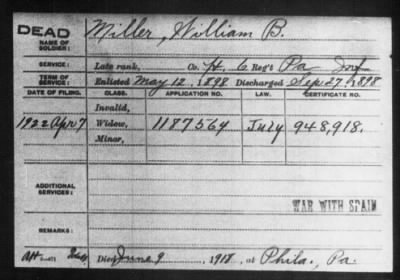 DEAD
NAME OF SOLDIER: Miller, William B.
SERVICE: Late rank, Co. H, 6 Reg't Pa Inf
TERM OF SERVICE: Enlisted May 12, 1898 Discharged Sep 27, 1898
DATE OF FILING. CLASS. APPLICATION NO. LAW. CERTIFICATE NO.
Invalid,
1922 Apr 7 Widow, 1187564 July 948,918.
Minor,
ADDITIONAL SERVICES:
WAR WITH SPAIN
REMARKS:
Died June 9 1918, at Phila., Pa.